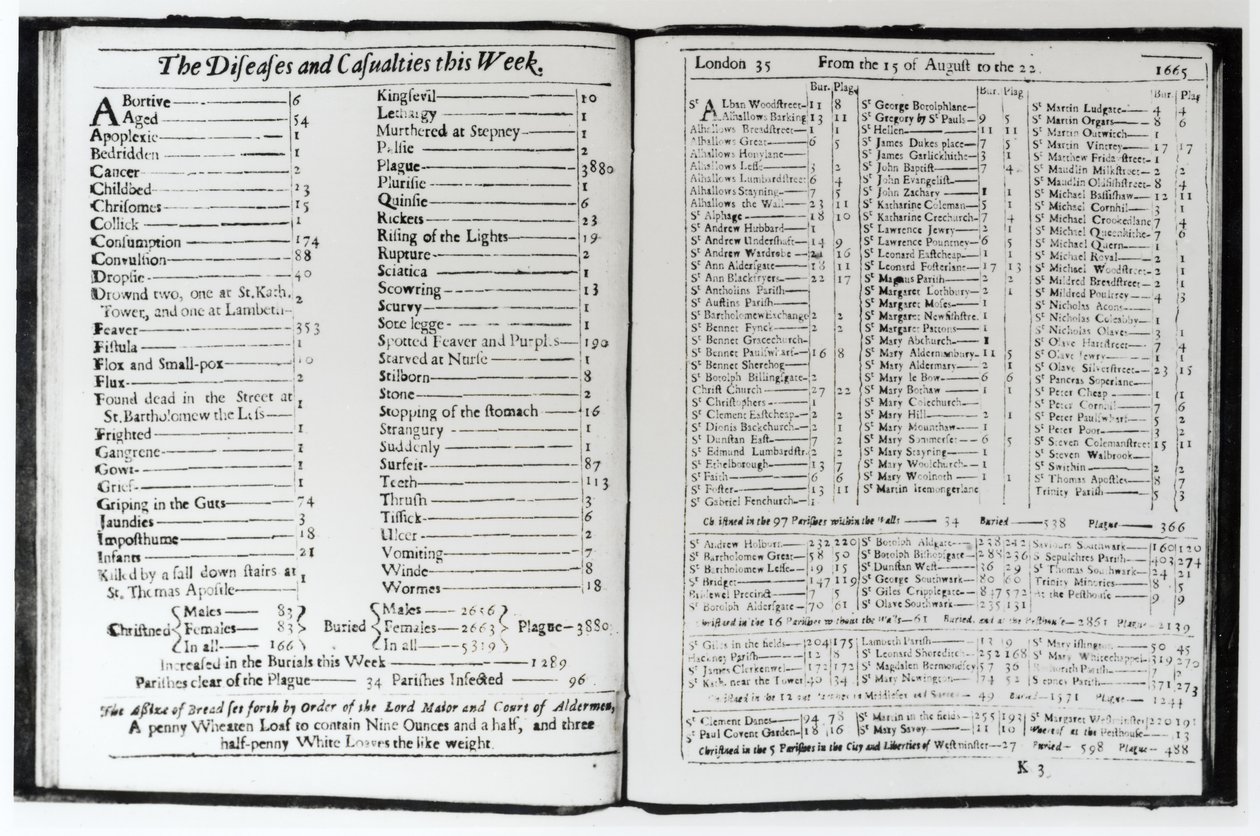 The Diſeaſes and Caſualties this Week.
ABortive 6
Aged 54
Apoplexie 1
Bedridden 1
Cancer 2
Childbed 23
Chriſomes 15
Collick 1
Conſumption 174
Convulſion 88
Dropſie 40
Drownd two, one at St. Kath.
Tower, and one at Lambeth 2
Feaver 353
Fiſtula 1
Flox and Small-pox 10
Flux 2
Found dead in the Street at
St. Bartholomew the Leſs 1
Frighted 1
Gangrene 1
Gowt 1
Grief 1
Griping in the Guts 74
Jaundies 3
Impoſthume 18
Infants 21
Killed by a fall down ſtairs at
St. Thomas Apoſtle 1
Kingſevil 10
Lethargy 1
Murthered at Stepney 1
Palſie 2
Plague 3880
Pluriſie 1
Quinſie 6
Rickets 23
Riſing of the Lights 19
Rupture 2
Sciatica 1
Scowring 13
Scurvy 1
Sore legge 1
Spotted Feaver and Purples 190
Starved at Nurſe 1
Stilborn 8
Stone 2
Stopping of the ſtomach 16
Strangury 1
Suddenly 1
Surfeit 87
Teeth 113
Thruſh 3
Tiſſick 6
Ulcer 2
Vomiting 7
Winde 8
Wormes 18
Chriſtned Males 83 Females 83 In all 166
Buried Males 2656 Females 2663 In all 5319
Plague 3880
Increaſed in the Burials this Week 1289
Pariſhes clear of the Plague 34 Pariſhes Infected 96
The Aſſize of Bread ſet forth by Order of the Lord Maior and Court of Aldermen,
A penny Wheaten Loaf to contain Nine Ounces and a half, and three
half-penny White Loaves the like weight.
London 35 From the 15 of Auguſt to the 22. 1665
Bur. Plag.
St ALban Woodſtreet 11 8
Alhallows Barking 13 11
Alhallows Breadſtreet 1 1
Alhallows Great 6 5
Alhallows Honylane
Alhallows Leſſe 3 2
Alhallows Lumbardſtreet 6 4
Alhallows Stayning 7 5
Alhallows the Wall 23 11
St Alphage 18 10
St Andrew Hubbard 1
St Andrew Underſhaft 14 9
St Andrew Wardrobe 21 16
St Ann Alderſgate 18 11
St Ann Blackfryers 22 17
St Antholins Pariſh
St Auſtins Pariſh
St Bartholomew Exchange 2 2
St Bennet Fynck 2 2
St Bennet Gracechurch
St Bennet Paulſwharf 16 8
St Bennet Sherehog
St Botolph Billingſgate 2
Chriſt Church 27 22
St Chriſtophers 1
St Clement Eaſtcheap 2 2
St Dionis Backchurch 2 1
St Dunſtan Eaſt 7 2
St Edmund Lumbardſtr. 2 2
St Ethelborough 13 7
St Faith 6 6
St Foſter 13 11
St Gabriel Fenchurch 1
Bur. Plag
St George Botolphlane
St Gregory by St Pauls 9 5
St Hellen 11 11
St James Dukes place 7 5
St James Garlickhithe 3 1
St John Baptiſt 7 4
St John Evangeliſt
St John Zachary 1 1
St Katharine Coleman 5 1
St Katharine Crechurch 7 4
St Lawrence Jewry 2 1
St Lawrence Pountney 6 5
St Leonard Eaſtcheap 1
St Leonard Foſterlane 17 13
St Magnus Pariſh 2 2
St Margaret Lothbury 2 1
St Margaret Moſes 1
St Margaret Newfiſhſtre. 1
St Margaret Pattons 1
St Mary Abchurch 1
St Mary Aldermanbury 11 5
St Mary Aldermary 2 1
St Mary le Bow 6 6
St Mary Bothaw 1 1
St Mary Colechurch
St Mary Hill 2 1
St Mary Mounthaw 1
St Mary Sommerſet 6 5
St Mary Stayning 1
St Mary Woolchurch 1
St Mary Woolnoth 1 1
St Martin Iremongerlane
Bur. Plag
St Martin Ludgate 4 4
St Martin Orgars 8 6
St Martin Outwitch 1
St Martin Vintrey 17 17
St Matthew Fridaſtreet 1
St Maudlin Milkſtreet 2 2
St Maudlin Oldfiſhſtreet 8 4
St Michael Baſſiſhaw 12 11
St Michael Cornhil 3 1
St Michael Crookedlane 7 4
St Michael Queenhithe 7 6
St Michael Quern 1
St Michael Royal 2 1
St Michael Woodſtreet 2 1
St Mildred Breadſtreet 2 1
St Mildred Poultrey 4 3
St Nicholas Acons
St Nicholas Coleabby 1
St Nicholas Olaves 3 1
St Olave Hartſtreet 7 4
St Olave Jewry 1 1
St Olave Silverſtreet 23 15
St Pancras Soperlane
St Peter Cheap 1 1
St Peter Cornhil 7 6
St Peter Paulſwharf 5 2
St Peter Poor 3 2
St Steven Colemanſtreet 15 11
St Steven Walbrook
St Swithin 2 2
St Thomas Apoſtles 8 7
Trinity Pariſh 5 3
Chriſtned in the 97 Pariſhes within the Walls 34 Buried 538 Plague 366
St Andrew Holborn 232 220
St Bartholomew Great 58 50
St Bartholomew Leſſe 19 15
St Bridget 147 119
Bridewel Precinct 7 5
St Botolph Alderſgate 70 61
St Botolph Aldgate 238 242
St Botolph Biſhopſgate 288 236
St Dunſtan Weſt 36 29
St George Southwark 80 60
St Giles Cripplegate 847 572
St Olave Southwark 235 131
Saviours Southwark 160 120
S Sepulchres Pariſh 403 274
St Thomas Southwark 24 21
Trinity Minories 8 5
At the Peſthouſe 9 9
Chriſtned in the 16 Pariſhes without the Walls 61 Buried, and at the Peſthouſe 2861 Plague 2139
St Giles in the fields 204 175
Hackney Pariſh 12 8
St James Clerkenwel 172 172
St Kath. near the Tower 40 34
Lambeth Pariſh 13 9
St Leonard Shoreditch 252 168
St Magdalen Bermondſey 57 36
St Mary Newington 74 52
St Mary Iſlington 50 45
St Mary Whitechappel 319 270
Rothorith Pariſh 7 2
Stepney Pariſh 371 273
Chriſtned in the 12 out Pariſhes in Middleſex and Surrey 49 Buried 1571 Plague 1244
St Clement Danes 94 78
St Paul Covent Garden 18 16
St Martin in the fields 255 193
St Mary Savoy 11 10
St Margaret Weſtminſter 220 191
Whereof at the Peſthouſe 13
Chriſtned in the 5 Pariſhes in the City and Liberties of Weſtminſter 27 Buried 598 Plague 488
K 3